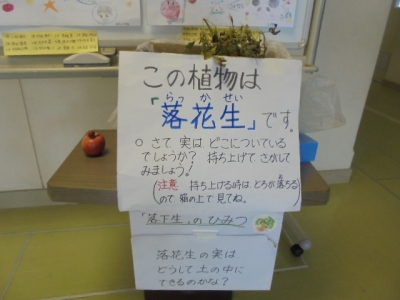 この植物は
らっかせい
「落花生」です。
○ さて 実は どこについている
でしょうか? 持ち上げて さがして
みましょう!
(注意 持ち上げる時は どろが落ちる
ので 箱の上で見てね。)
「落下生」のひみつ
落花生の実は
どうして土の中に
できるのかな?